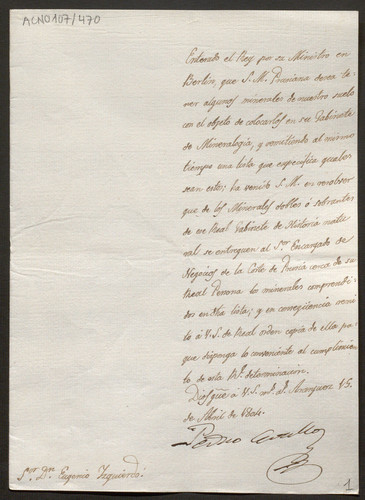 ACN0107/470
Enterado el Rey por su Ministro en
Berlin, que S. M. Prusiana desea te-
ner algunos minerales de nuestro suelo
con el objeto de colocarlos en su Gabinete
de Mineralogia, y remitiendo al mismo
tiempo una lista que especifica quales
sean estos; ha venido S. M. en resolver
que de los Minerales dobles ó sobrantes
de ese Real Gabinete de Historia natu-
ral se entreguen al Sor Encargado de
Negocios de la Corte de Prusia cerca de su
Real Persona los minerales comprendi-
dos en dha lista; y en conseqüencia remi-
to á V. S. de Real orden copia de ella pa-
ra que disponga lo conveniente al cumplimien-
to de esta Rl determinacion.
Dios gue á V. S. ms as Aranjuez 15
de Abril de 1804.
Pedro Cevallos
Sor Dn Eugenio Izquierdo.
1